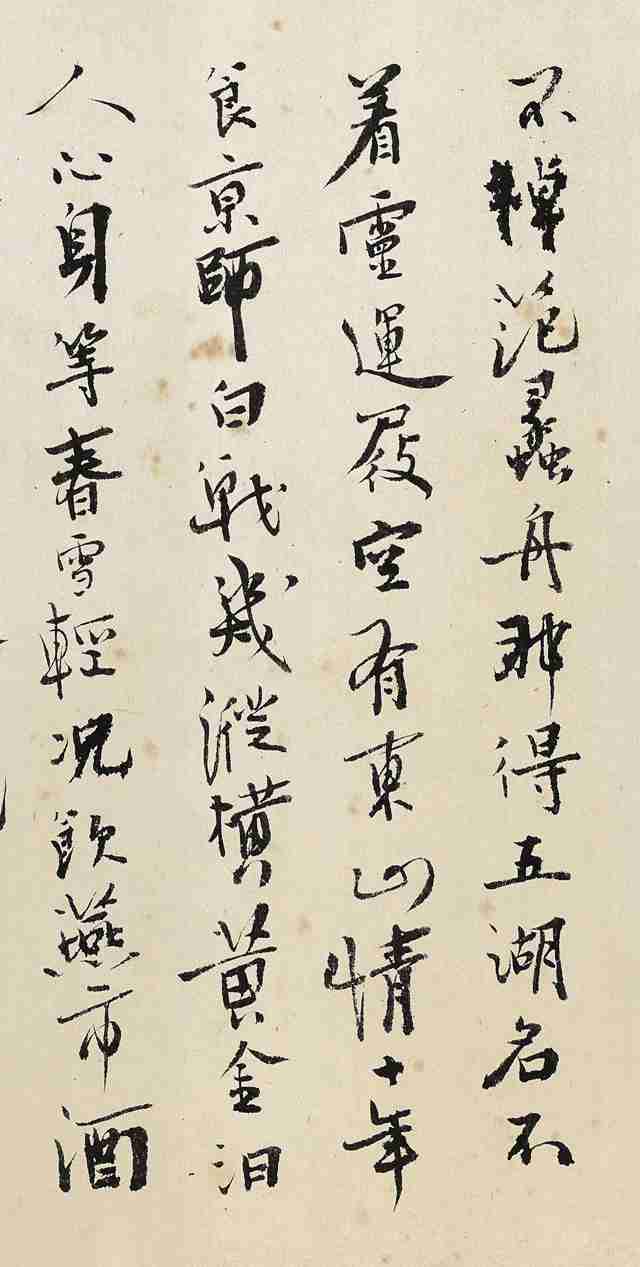 不棹范蠡舟那得五湖名不
着靈運屐空有東山情十年
食京師白戰幾縱橫黃金汨
人心身等春雪輕況飲燕市酒